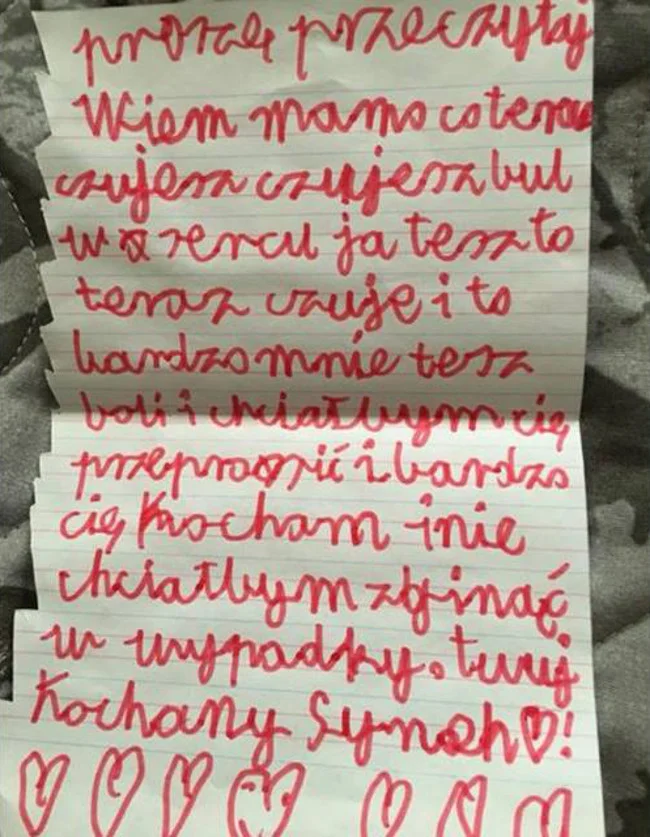 proszę przeczytaj
Wiem mamo co teraz
czujesz czujesz bul
w sercu ja tesz to
teraz czuje i to
bardzo mnie tesz
boli i chciałbym cię
przeprosić i bardzo
cię kocham i nie
chciałbym zginąć
w wypadky. twuj
Kochany Synoh♡!